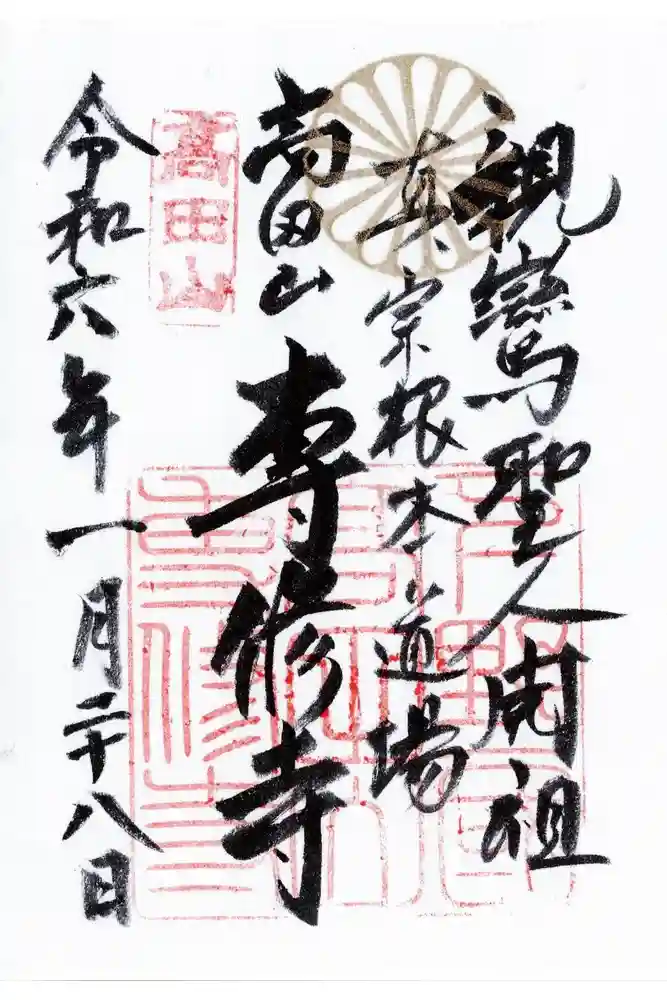 親鸞聖人開祖
真宗根本道場
高田山
専修寺
高田山
令和六年一月二十八日